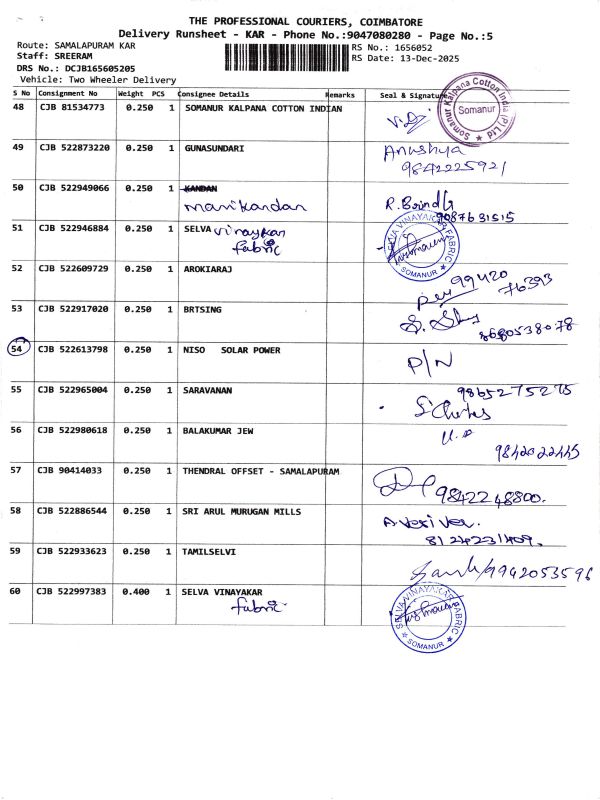 THE PROFESSIONAL COURIERS, COIMBATORE
Delivery Runsheet - KAR - Phone No.:9047080280 - Page No.:5
Route: SAMALAPURAM KAR
RS No.: 1656052
Staff: SREERAM
RS Date: 13-Dec-2025
DRS No.: DCJB165605205
Vehicle: Two Wheeler Delivery
S No Consignment No Weight PCS Consignee Details Remarks Seal & Signature
48 CJB 81534773 0.250 1 SOMANUR KALPANA COTTON INDIAN
Somanur Kalpana Cotton India (P) Ltd
Somanur
49 CJB 522873220 0.250 1 GUNASUNDARI Anushya
9842225921
50 CJB 522949066 0.250 1 KANDAN
manikandan
9087631515
51 CJB 522946884 0.250 1 SELVA vinaykar
fabric
SELVA VINAYAKAR FABRIC
SOMANUR
52 CJB 522609729 0.250 1 AROKIARAJ
99420
76393
53 CJB 522917020 0.250 1 BRTSING
8680538078
54 CJB 522613798 0.250 1 NISO SOLAR POWER P/N
55 CJB 522965004 0.250 1 SARAVANAN
56 CJB 522980618 0.250 1 BALAKUMAR JEW
57 CJB 90414033 0.250 1 THENDRAL OFFSET - SAMALAPURAM
9842248800.
58 CJB 522886544 0.250 1 SRI ARUL MURUGAN MILLS
8124231409.
59 CJB 522933623 0.250 1 TAMILSELVI
9942053596
60 CJB 522997383 0.400 1 SELVA VINAYAKAR
fabric
SELVA VINAYAKAR FABRIC
SOMANUR